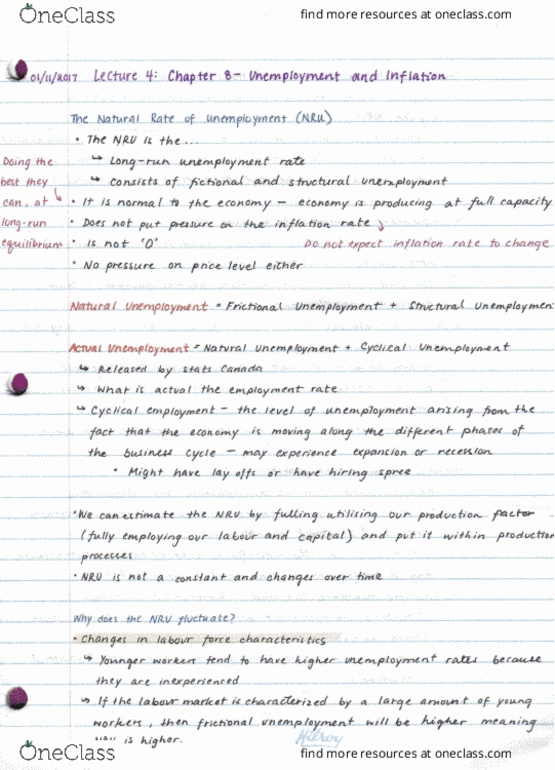 OneClass
find more resources at oneclass.com
01/11/2017 Lecture 4: Chapter 8 - Unemployment and Inflation
The Natural Rate of Unemployment (NRU)
• The NRU is the...
↳ Long-run unemployment rate
↳ Consists of fictional and structural unemployment
Doing the
best they
can, at
long-run
equilibrium
• It is normal to the economy - economy is producing at full capacity
• Does not put pressure on the inflation rate
• Is not '0'
Do not expect inflation rate to change
• No pressure on price level either
Natural Unemployment = Frictional Unemployment + Structural Unemploymen
Actual Unemployment = Natural Unemployment + Cyclical Unemployment
↳ Released by stats Canada
↳ What is actual the employment rate
↳ Cyclical employment - the level of unemployment arising from the
fact that the economy is moving along the different phases of
the business cycle - may experience expansion or recession
• Might have lay offs or have hiring spree
• We can estimate the NRU by fulling utilising our production factor
(fully employing our labour and capital) and put it within production
processes
• NRU is not a constant and changes over time
Why does the NRU fluctuate?
• Changes in labour force characteristics
↳ Younger workers tend to have higher unemployment rates because
they are inexperienced
↳ If the labour market is characterized by a large amount of young
workers, then frictional unemployment will be higher meaning
is higher.
Hilroy
OneClass
find more resources at oneclass.com